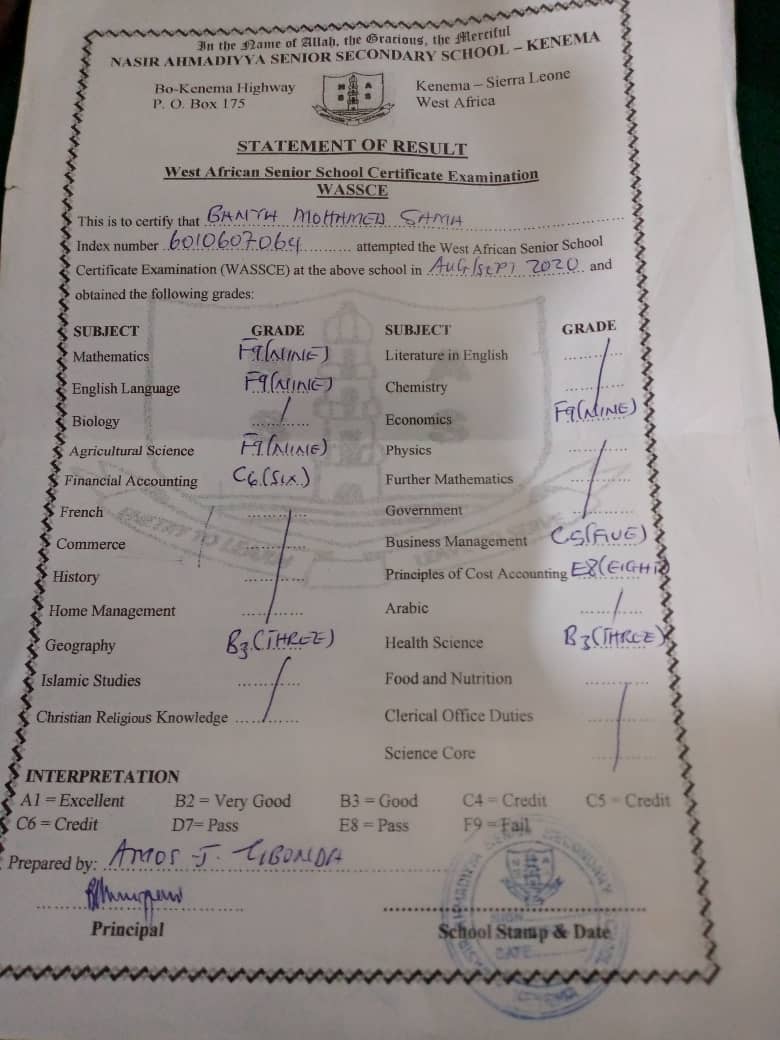 In the Name of Allah, the Gracious, the Merciful
NASIR AHMADIYYA SENIOR SECONDARY SCHOOL – KENEMA
Bo-Kenema Highway
P. O. Box 175
N A
S S
Kenema – Sierra Leone
West Africa
STATEMENT OF RESULT
West African Senior School Certificate Examination
WASSCE
This is to certify that BANYA MOHAMED SAMA
Index number 6010607064 attempted the West African Senior School
Certificate Examination (WASSCE) at the above school in AUG/SEPT 2020 and
obtained the following grades:
SUBJECT GRADE SUBJECT GRADE
Mathematics F9(NINE) Literature in English
English Language F9(NINE) Chemistry
Biology Economics F9(NINE)
Agricultural Science F9(NINE) Physics
Financial Accounting C6(SIX) Further Mathematics
French Government
Commerce Business Management C5(FIVE)
History Principles of Cost Accounting E8(EIGHT)
Home Management Arabic
Geography B3(THREE) Health Science B3(THREE)
Islamic Studies Food and Nutrition
Christian Religious Knowledge Clerical Office Duties
Science Core
INTERPRETATION
A1 = Excellent B2 = Very Good B3 = Good C4 = Credit C5 = Credit
C6 = Credit D7= Pass E8 = Pass F9 = Fail
Prepared by: AMOS J.
Principal School Stamp & Date
SIGN
DATE
KENEMA